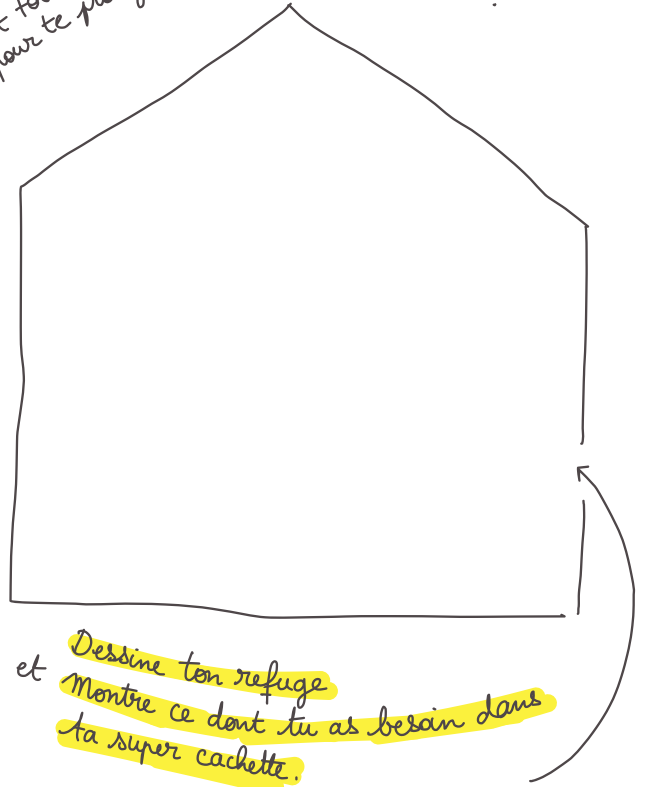 pour te
Dessine ton refuge
et Montre ce dont tu as besoin dans
ta super cachette.